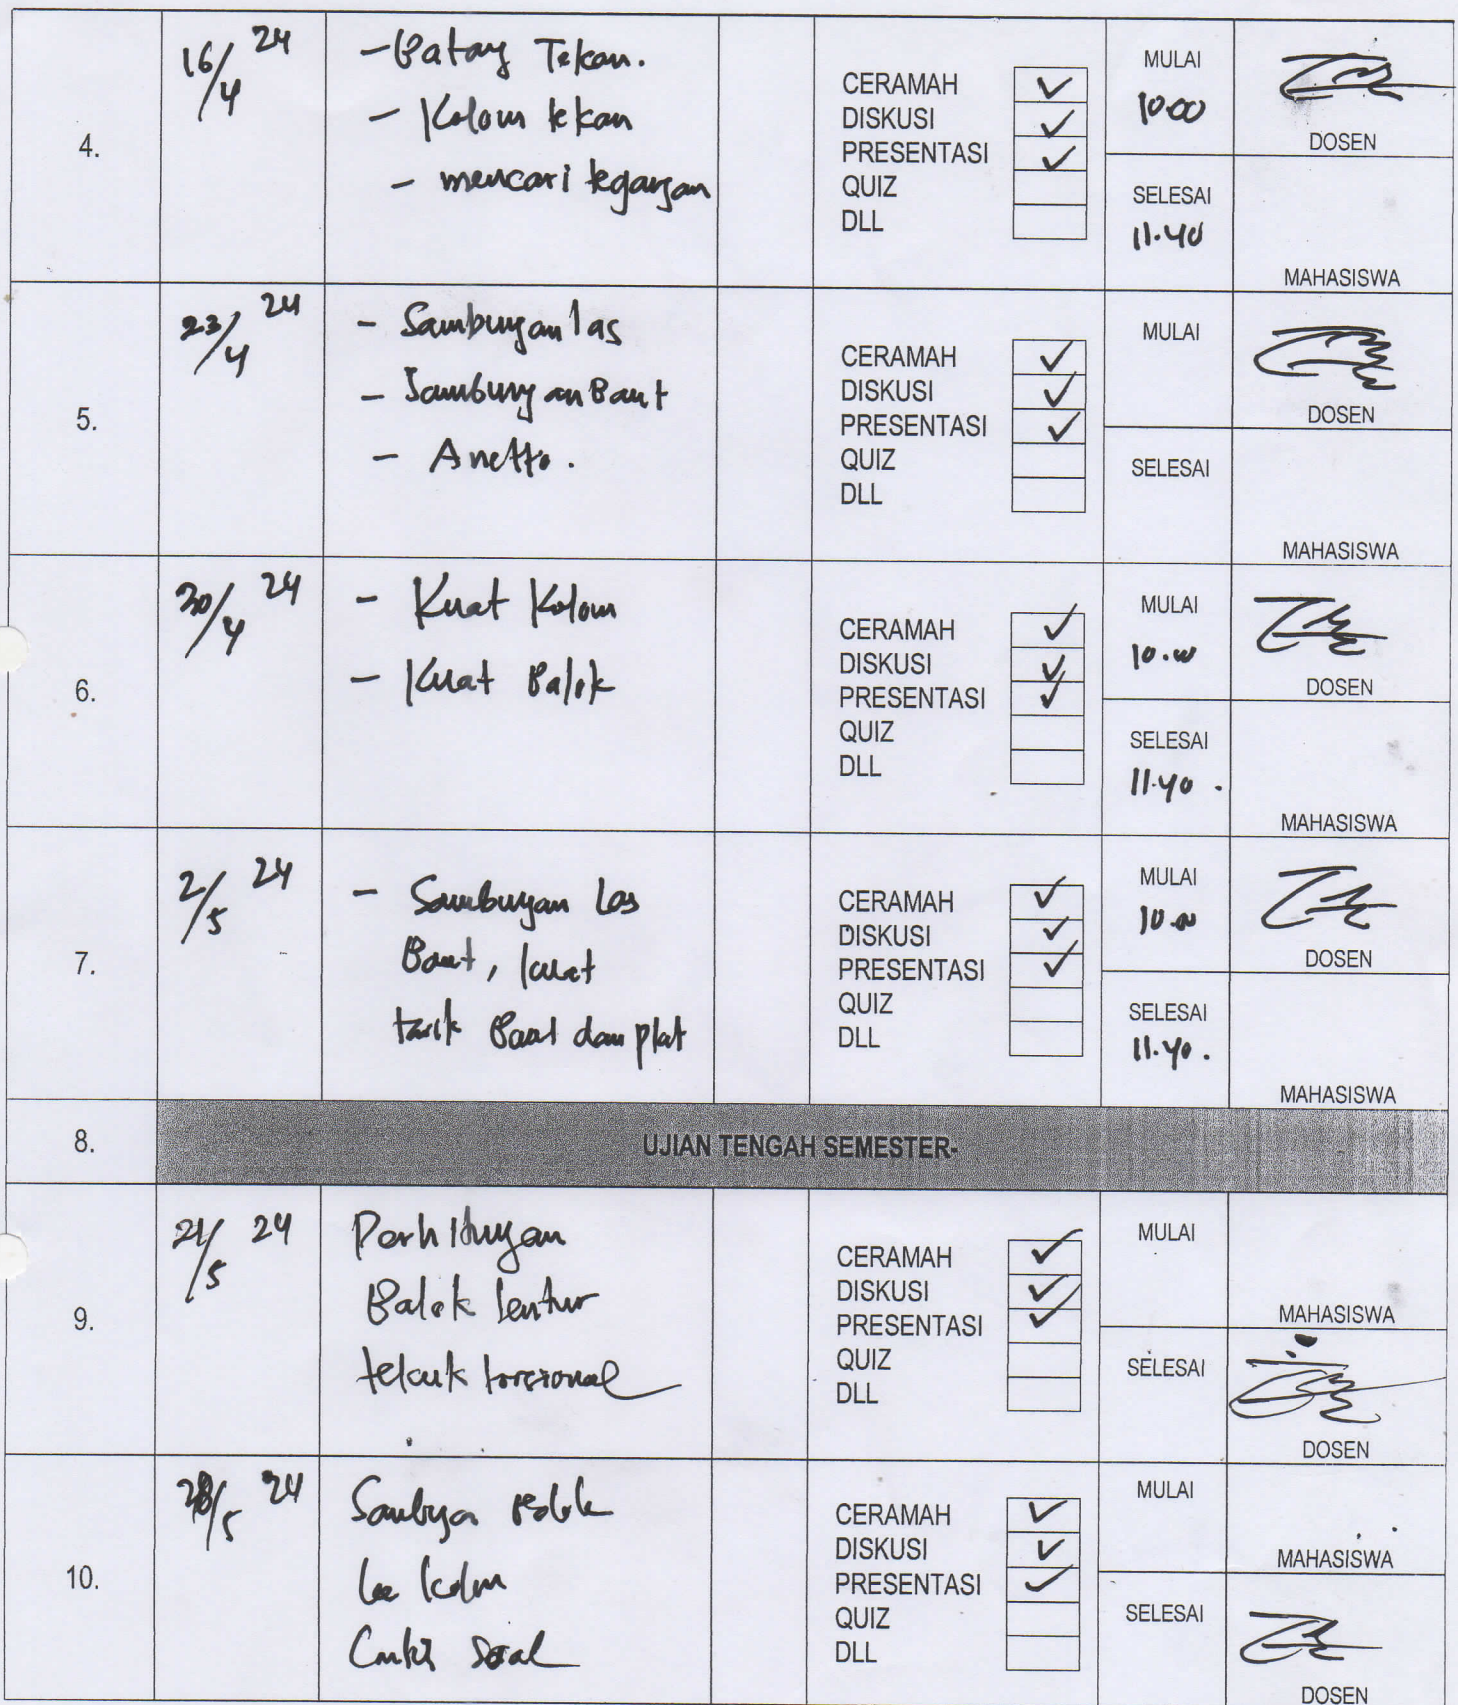 4.
16/4 24
-Batang Tekan.
- Kolom tekan
- mencari tegangan
CERAMAH ✓
DISKUSI ✓
PRESENTASI ✓
QUIZ
DLL
MULAI
10.00
SELESAI
11.40
DOSEN
MAHASISWA
5.
23/4 24
- Sambungan las
- Sambungan Baut
- Anetto.
CERAMAH ✓
DISKUSI ✓
PRESENTASI ✓
QUIZ
DLL
MULAI
SELESAI
DOSEN
MAHASISWA
6.
30/4 24
- Kuat Kolom
- Kuat Balok
CERAMAH ✓
DISKUSI ✓
PRESENTASI ✓
QUIZ
DLL
MULAI
10.00
SELESAI
11.40.
DOSEN
MAHASISWA
7.
2/5 24
- Sambungan Las
Baut, kuat
tarik Baut dan plat
CERAMAH ✓
DISKUSI ✓
PRESENTASI ✓
QUIZ
DLL
MULAI
10.00
SELESAI
11.40.
DOSEN
MAHASISWA
8.
UJIAN TENGAH SEMESTER-
9.
21/5 24
Perhitungan
Balok lentur
tekuk torsional
CERAMAH ✓
DISKUSI ✓
PRESENTASI ✓
QUIZ
DLL
MULAI
SELESAI
MAHASISWA
DOSEN
10.
28/5 24
Sambungan Balok
ke kolom
Contoh Soal
CERAMAH ✓
DISKUSI ✓
PRESENTASI ✓
QUIZ
DLL
MULAI
SELESAI
MAHASISWA
DOSEN